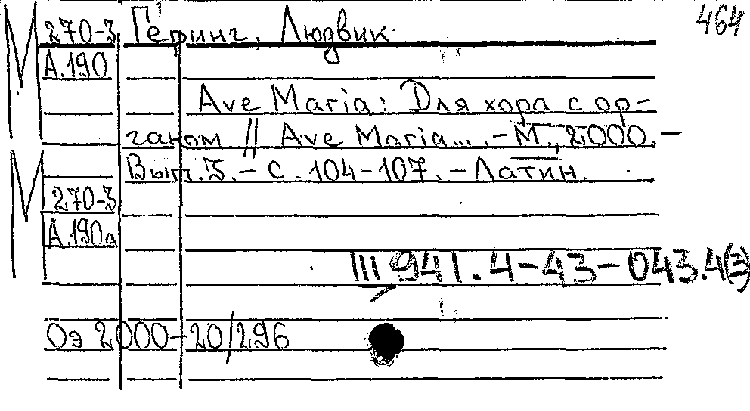 464
М 270-3 Геринг, Людвик.
А.190
Ave Maria: Для хора с ор-
ганом // Ave Maria... - М., 2000. -
Вып. 3. - С. 104-107. - Латин.
М 270-3
А.190а
III 941.4-43-043.4(3)
Оэ 2000-20/296